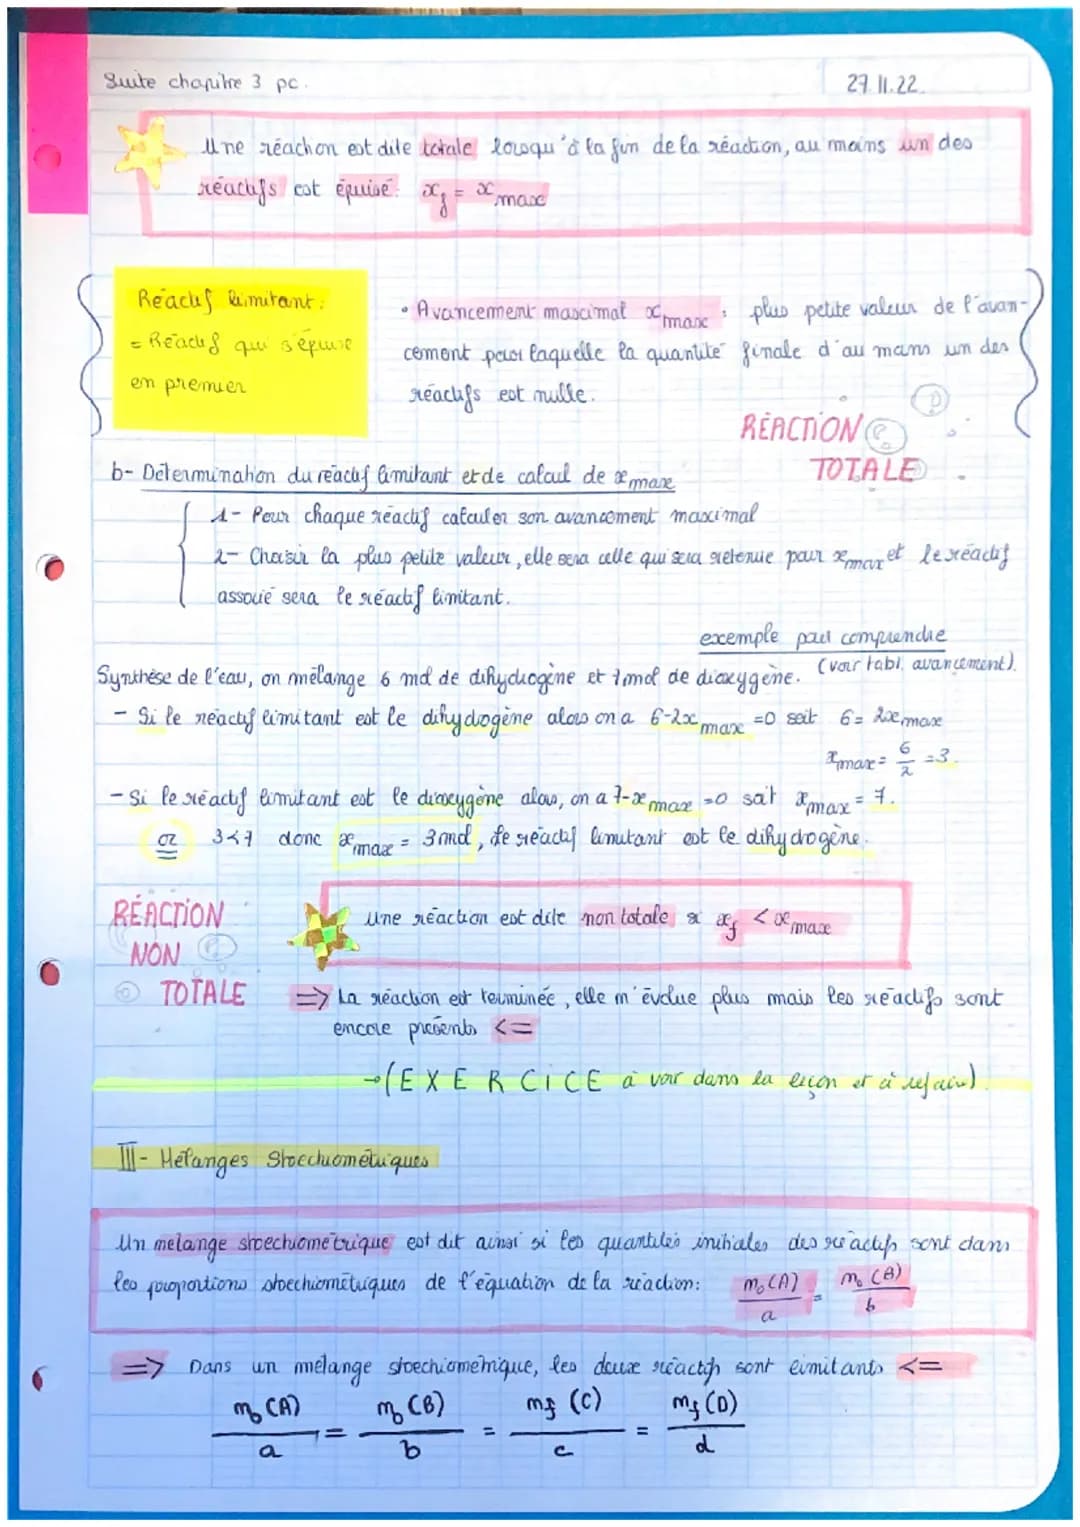 Suite chapitre 3 pc.
27.11.22
Une réaction est dite totale lorsqu'à la fin de la réaction, au moins un des
réactifs est épuisé : x_f = x_max
Réactif limitant :
= Réactif qui s'épuise
en premier
• Avancement maximal x_max : plus petite valeur de l'avan-
cement pour laquelle la quantité finale d'au moins un des
réactifs est nulle.
RÉACTION
TOTALE
b- Détermination du réactif limitant et de calcul de x_max
1- Pour chaque réactif calculer son avancement maximal
2- Choisir la plus petite valeur, elle sera celle qui sera retenue pour x_max et le réactif
associé sera le réactif limitant.
exemple pour comprendre
(voir tabl. avancement).
Synthèse de l'eau, on mélange 6 mol de dihydrogène et 7 mol de dioxygène.
- Si le réactif limitant est le dihydrogène alors on a 6-2x_max =0 soit 6= 2x_max
x_max = 6/2 =3.
- Si le réactif limitant est le dioxygène alors, on a 7-x_max =0 soit x_max = 7.
or 3<7 donc x_max = 3mol, le réactif limitant est le dihydrogène.
RÉACTION
NON
TOTALE
Une réaction est dite non totale si x_f < x_max
=> La réaction est terminée, elle n'évolue plus mais les réactifs sont
encore présents <=
→(EXERCICE à voir dans la leçon et à refaire).
III- Mélanges Stoechiométriques
Un mélange stoechiométrique est dit ainsi si les quantités initiales des réactifs sont dans
les proportions stoechiométriques de l'équation de la réaction: n₀(A)/a = n₀(B)/b
=> Dans un mélange stoechiométrique, les deux réactifs sont limitants <=
n₀(A)/a = n₀(B)/b = n_f(C)/c = n_f(D)/d